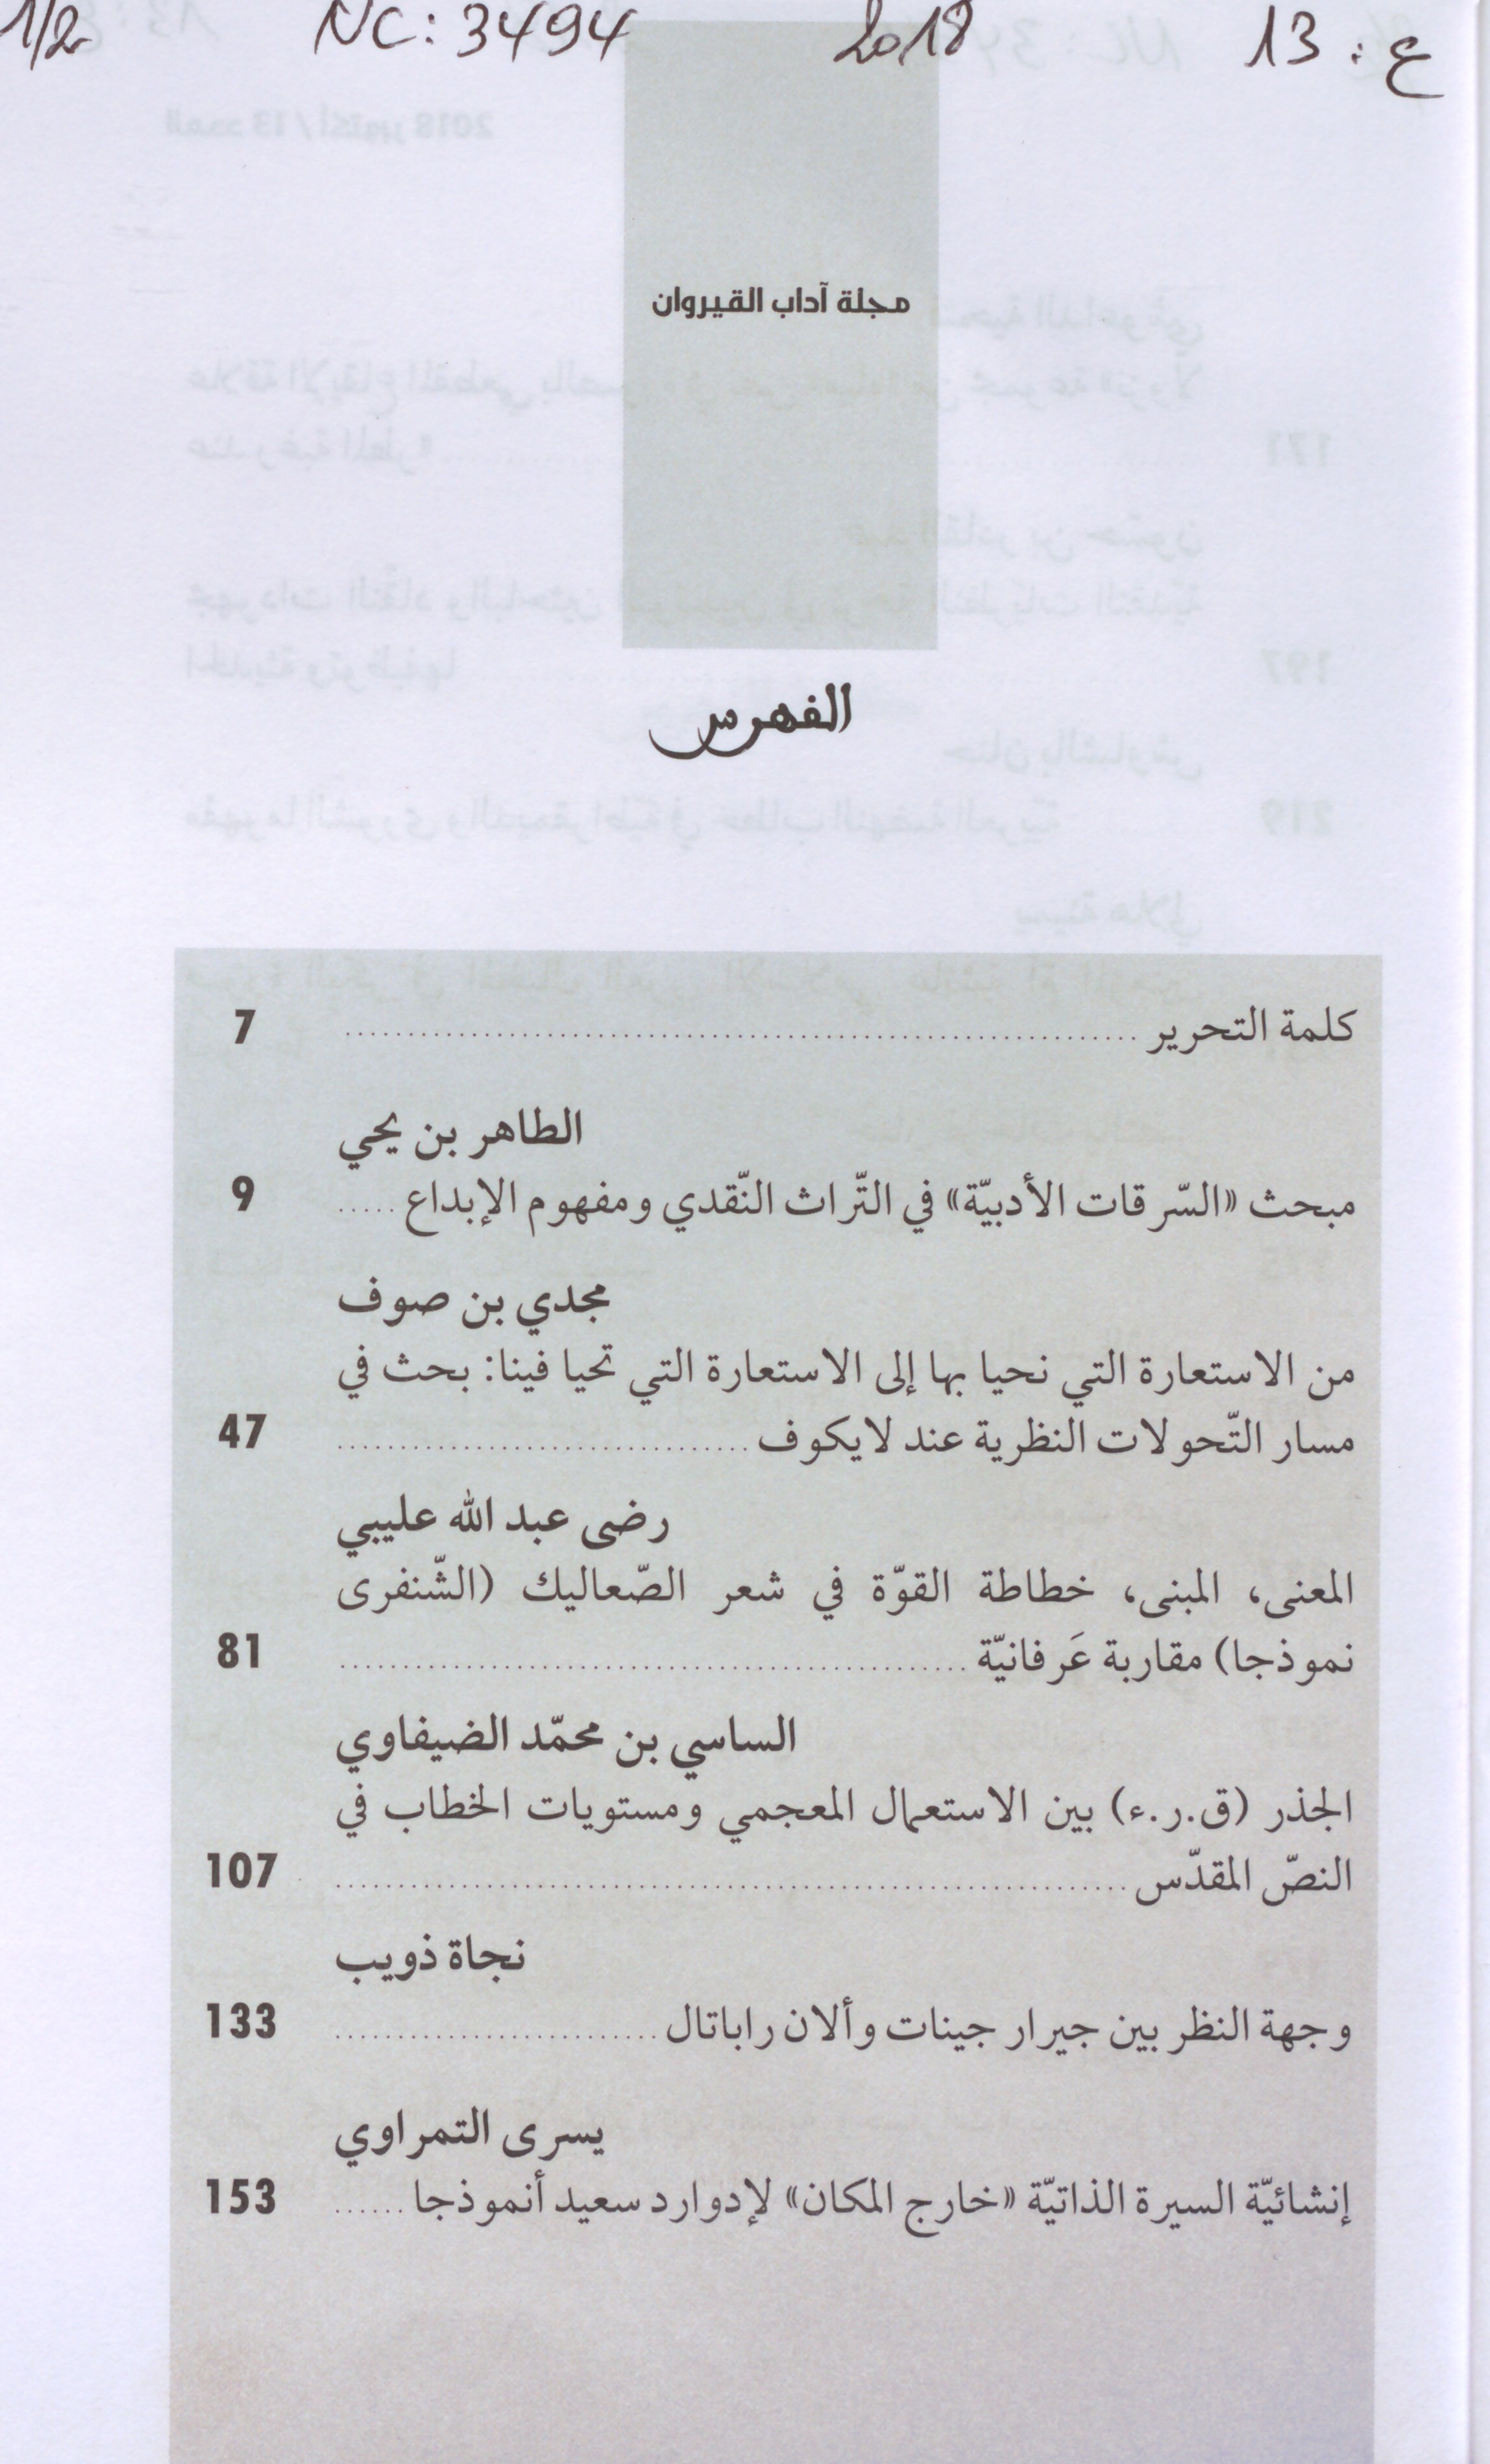 1/2 NC: 3494 2018 ع: 13
مجلة آداب القيروان
الفهرس
كلمة التحرير ........ 7
الطاهر بن يحي
مبحث «السّرقات الأدبيّة» في التّراث النّقدي ومفهوم الإبداع ..... 9
مجدي بن صوف
من الاستعارة التي نحيا بها إلى الاستعارة التي تحيا فينا: بحث في
مسار التّحولات النظرية عند لايكوف ........ 47
رضى عبد الله عليبي
المعنى، المبنى، خطاطة القوّة في شعر الصّعاليك (الشّنفرى
نموذجا) مقاربة عَرفانيّة ........ 81
الساسي بن محمّد الضيفاوي
الجذر (ق.ر.ء) بين الاستعمال المعجمي ومستويات الخطاب في
النصّ المقدّس ........ 107
نجاة ذويب
وجهة النظر بين جيرار جينات وألان راباتال ........ 133
يسرى التمراوي
إنشائيّة السيرة الذاتيّة «خارج المكان» لإدوارد سعيد أنموذجا ...... 153